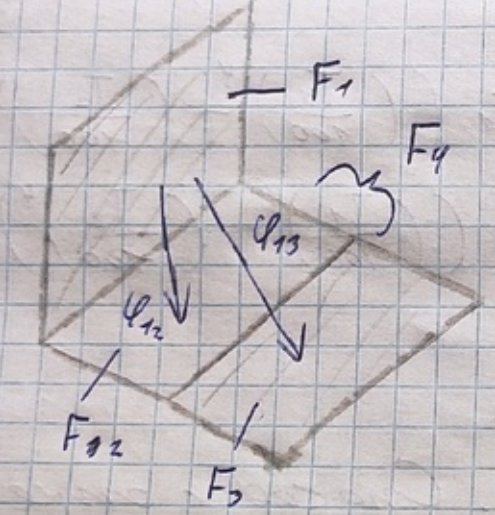 F₁
F₄
φ₁₃
φ₁₂
F₂
F₃